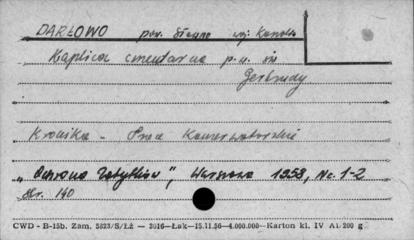 DARŁOWO pow. Sławno woj. Koszal.
Kaplica cmentarna p.w. św.
Gertrudy
Kronika - Prace Konserwatorskie
"Ochrona Zabytków", Warszawa 1958, Nr. 1-2
str. 140
CWD - B-15b. Zam. 5823/S/Łż — 2016—Łak—15.11.56—4.000.000—Karton kl. IV A1. 200 g